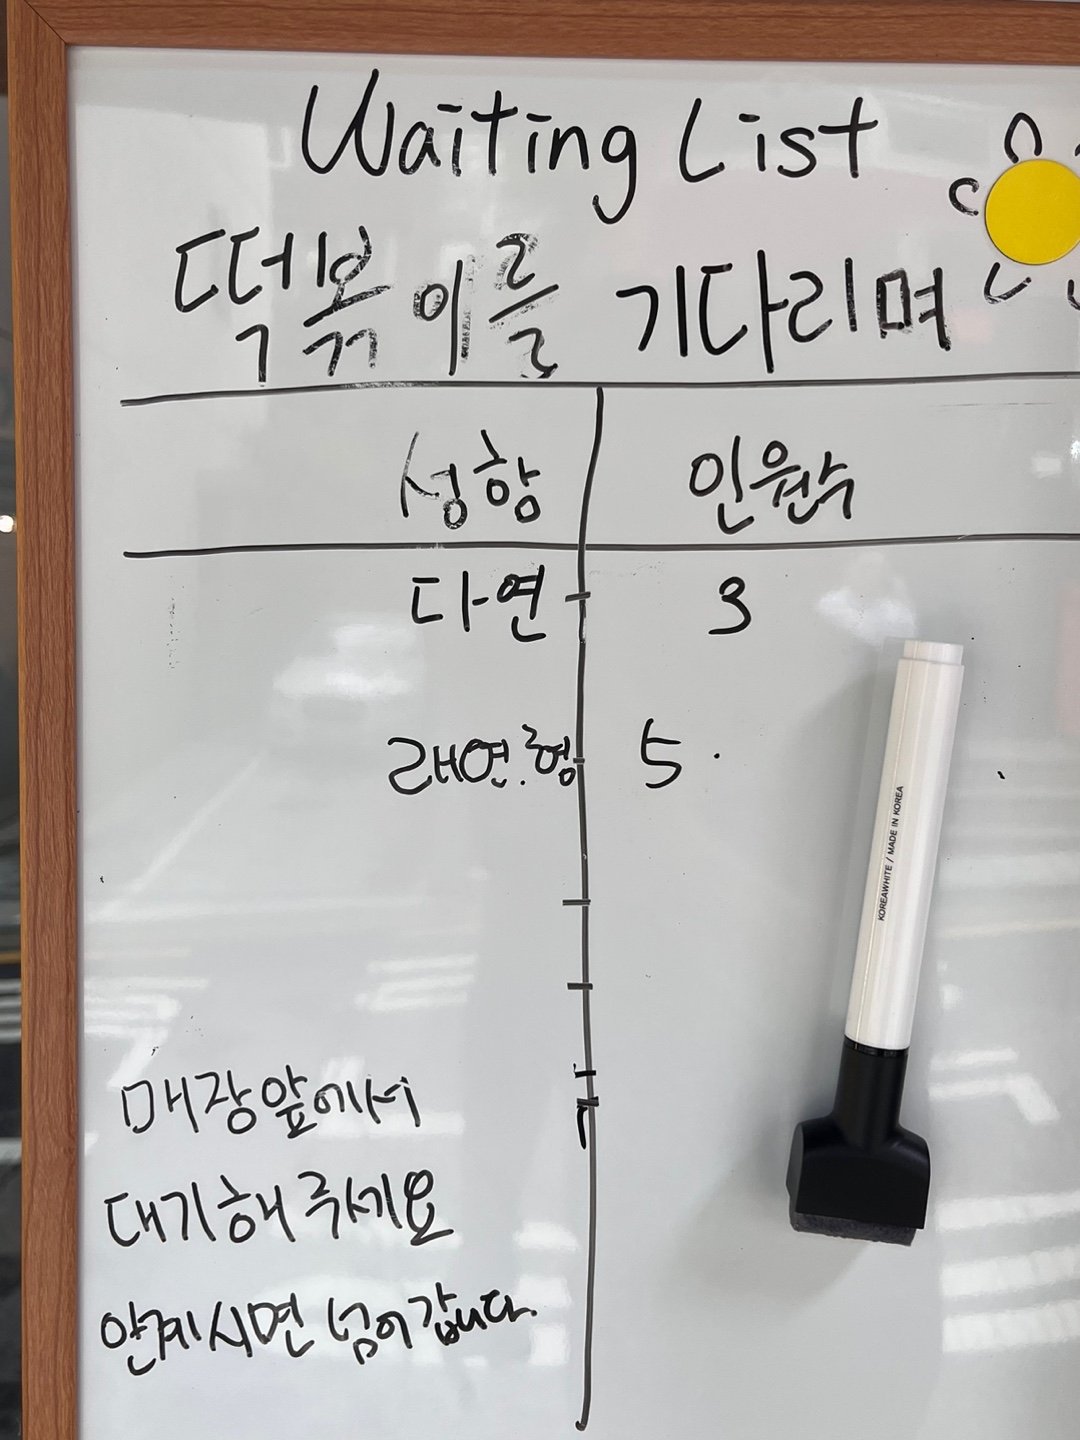 Waiting List
떡볶이를 기다리며
성함 인원수
다연 3
래연.형 5.
매장앞에서
대기해 주세요
안계시면 넘어갑니다.
KOREAWHITE / MADE IN KOREA